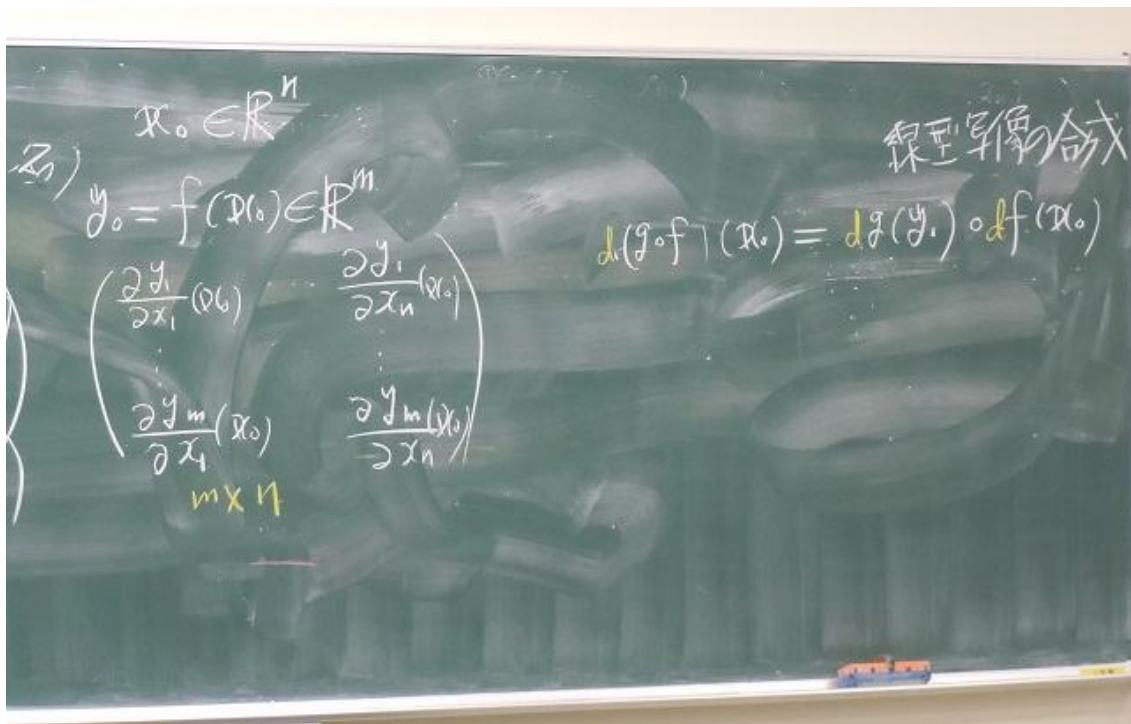 x₀ ∈ ℝⁿ
y₀ = f(x₀) ∈ ℝᵐ
∂y₁/∂x₁(x₀) ∂y₁/∂xₙ(x₀)
⋮ ⋮
∂yₘ/∂x₁(x₀) ∂yₘ/∂xₙ(x₀)
m×n
線型写像の合成
d(g∘f)(x₀) = dg(y₀)∘df(x₀)